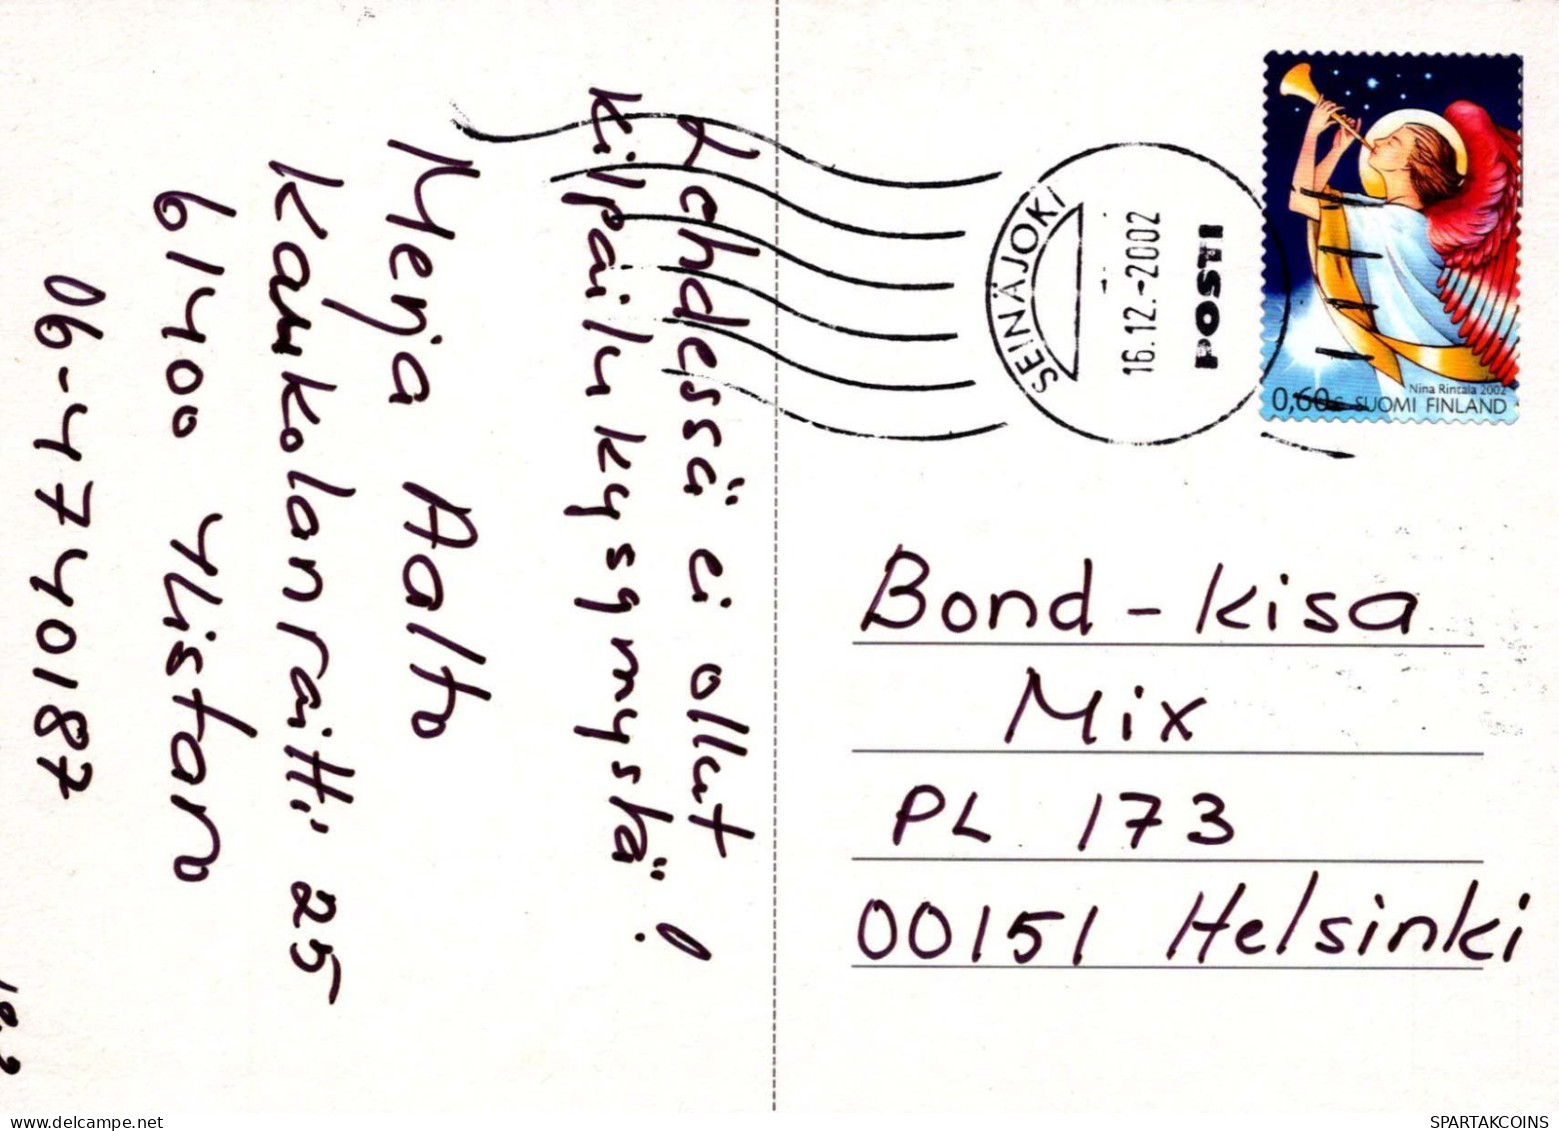 Lehdessä ei ollut
kilpailukysymystä!
Merja Aalto
Kaukolanraitti 25
61400 Ylistaro
06-4740187
SEINÄJOKI
16.12.-2002
POSTI
Nina Rintala 2002
0,60 € SUOMI FINLAND
Bond-kisa
Mix
PL 173
00151 Helsinki
SPARTAKCOINS